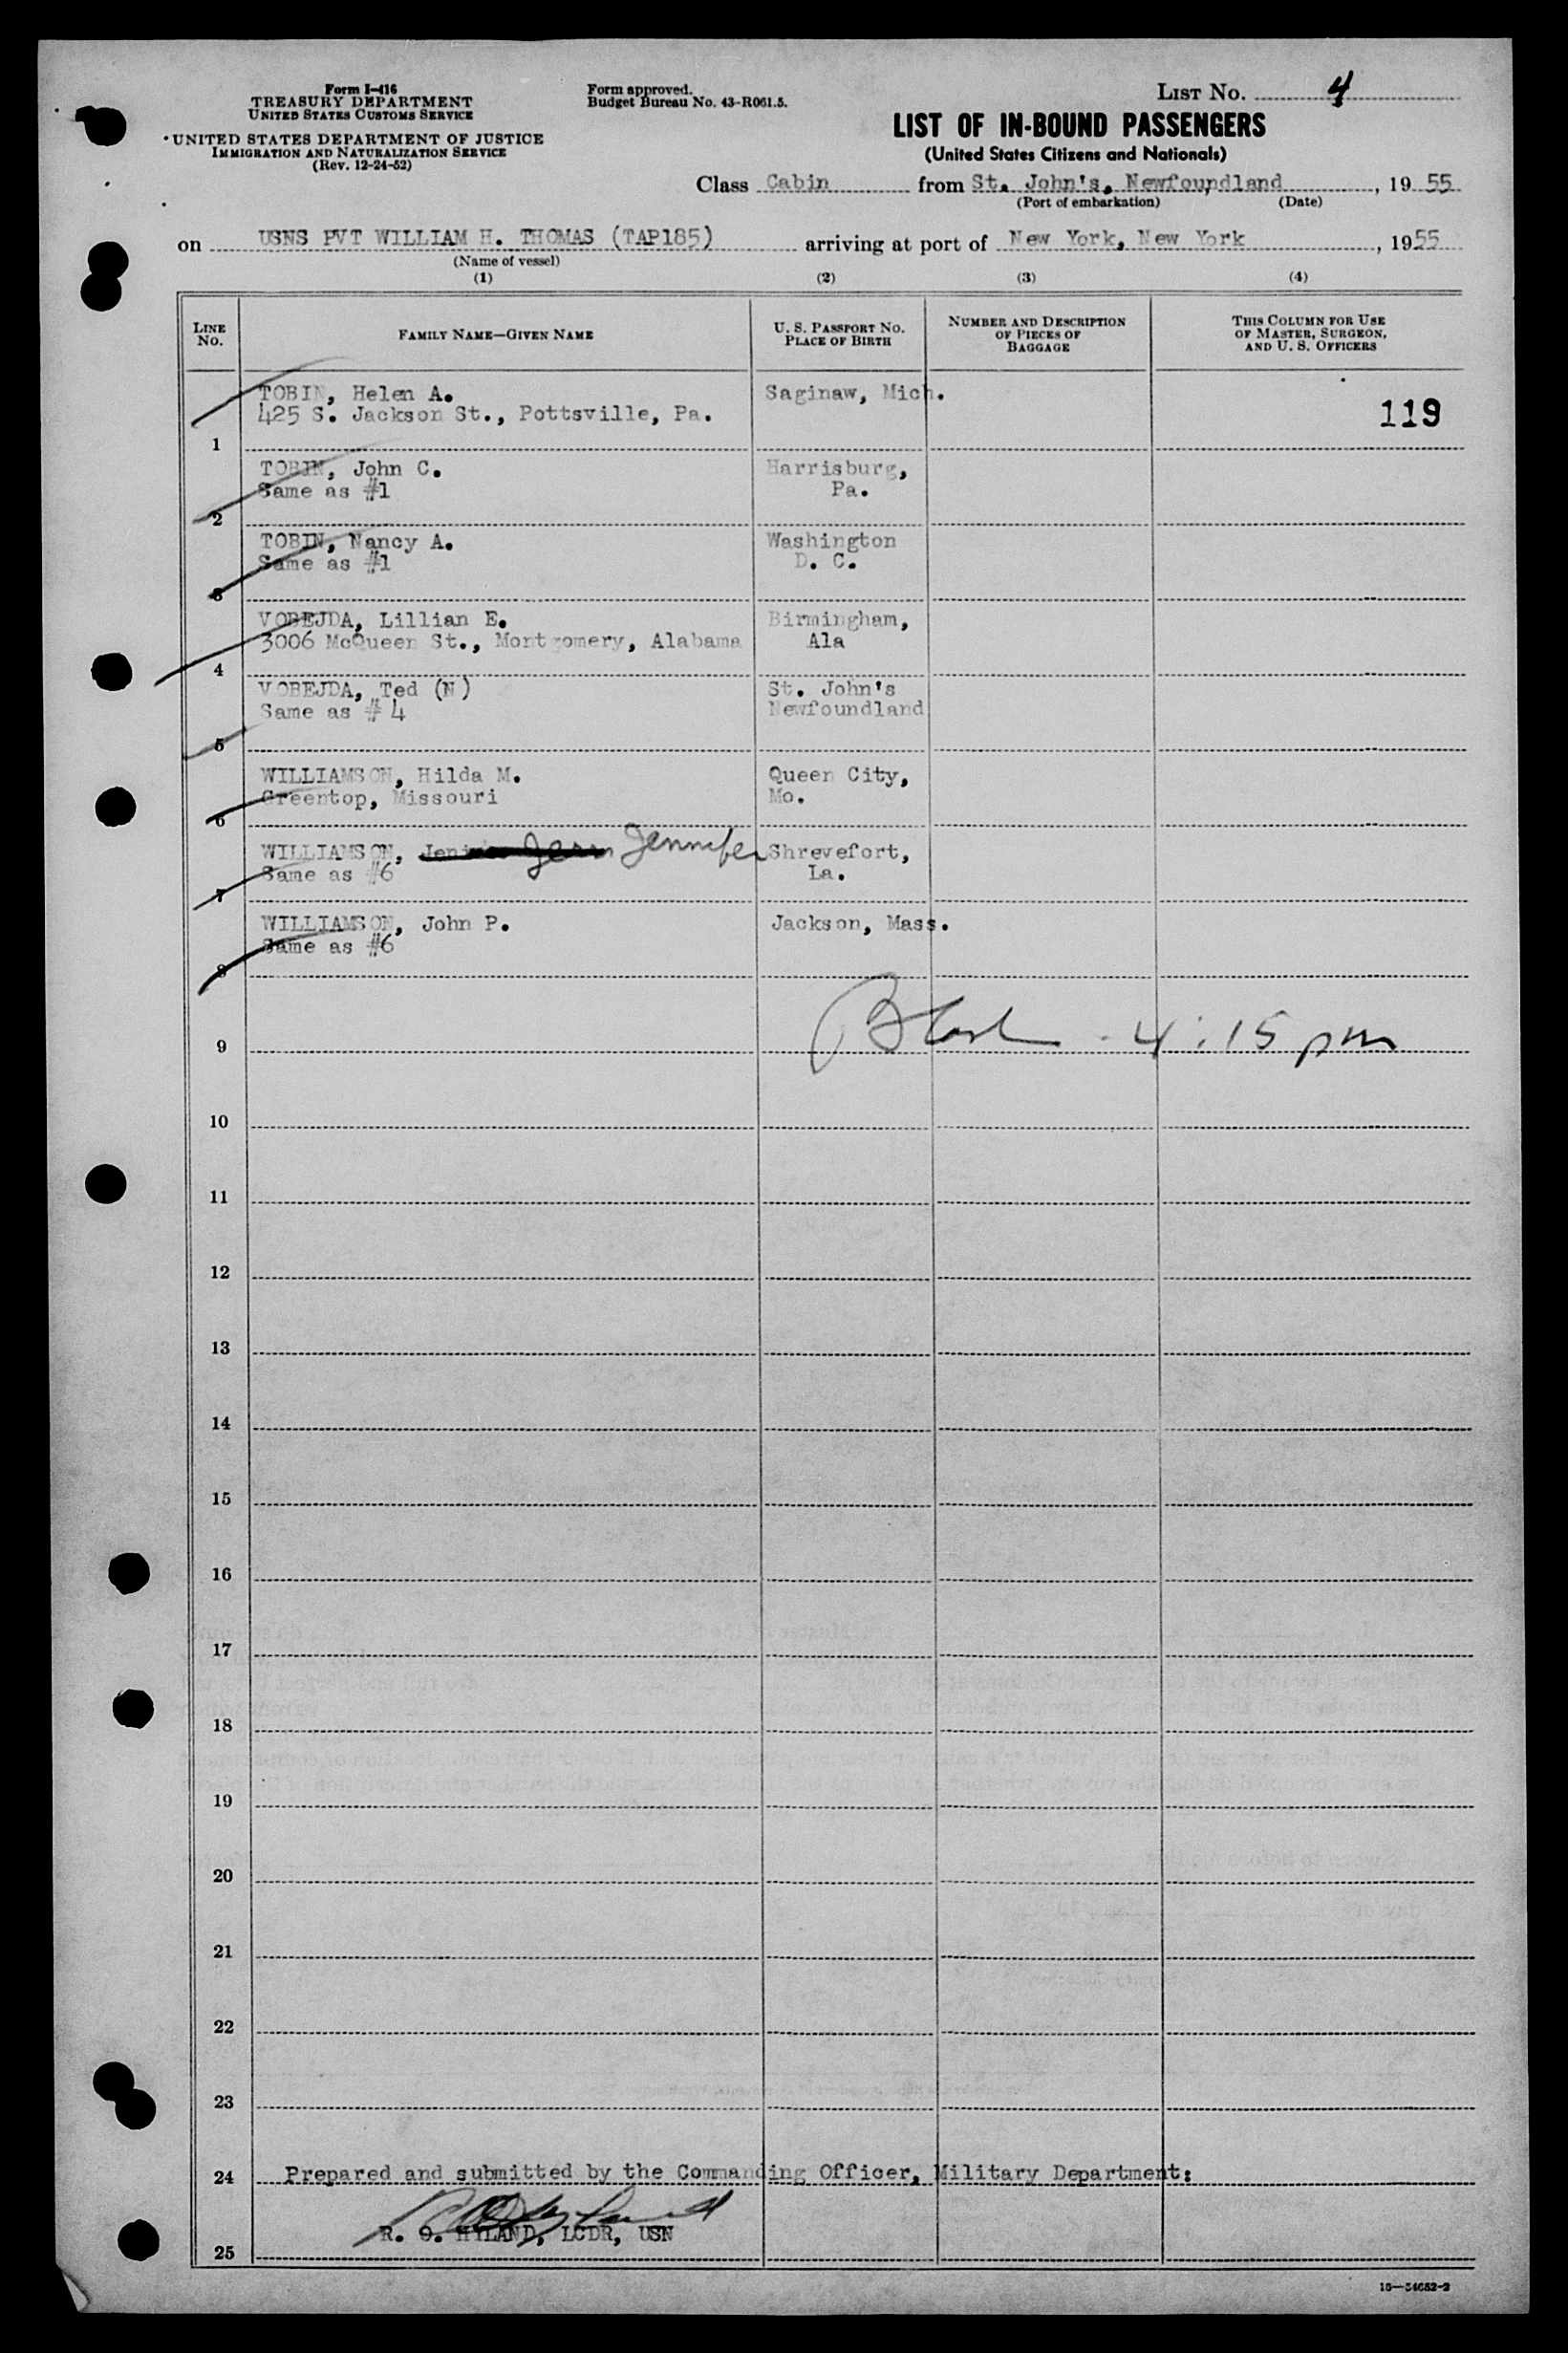 Form I-416
TREASURY DEPARTMENT
UNITED STATES CUSTOMS SERVICE
UNITED STATES DEPARTMENT OF JUSTICE
IMMIGRATION AND NATURALIZATION SERVICE
(Rev. 12-24-52)
Form approved.
Budget Bureau No. 43-R061.5.
LIST No. 4
LIST OF IN-BOUND PASSENGERS
(United States Citizens and Nationals)
Class Cabin from St. John's, Newfoundland, 19 55
(Port of embarkation) (Date)
on USNS PVT WILLIAM H. THOMAS (TAP185) arriving at port of New York, New York, 1955
(Name of vessel)
(1) (2) (3) (4)
LINE No.
FAMILY NAME—GIVEN NAME
U. S. PASSPORT No. PLACE OF BIRTH
NUMBER AND DESCRIPTION OF PIECES OF BAGGAGE
THIS COLUMN FOR USE OF MASTER, SURGEON, AND U. S. OFFICERS
TOBIN, Helen A. Saginaw, Mich.
425 S. Jackson St., Pottsville, Pa. 119
1
TOBIN, John C. Harrisburg,
Same as #1 Pa.
2
TOBIN, Nancy A. Washington
Same as #1 D. C.
3
VOBEJDA, Lillian E. Birmingham,
3006 McQueen St., Montgomery, Alabama Ala
4
VOBEJDA, Ted (N) St. John's
Same as # 4 Newfoundland
5
WILLIAMSON, Hilda M. Queen City,
Greentop, Missouri Mo.
6
WILLIAMSON, Jennifer Shrevefort,
Same as #6 La.
7
WILLIAMSON, John P. Jackson, Mass.
Same as #6
8
4:15 pm
9
10
11
12
13
14
15
16
17
18
19
20
21
22
23
24 Prepared and submitted by the Commanding Officer, Military Department:
R. O. HYLAND, LCDR, USN
25
16—54652-2